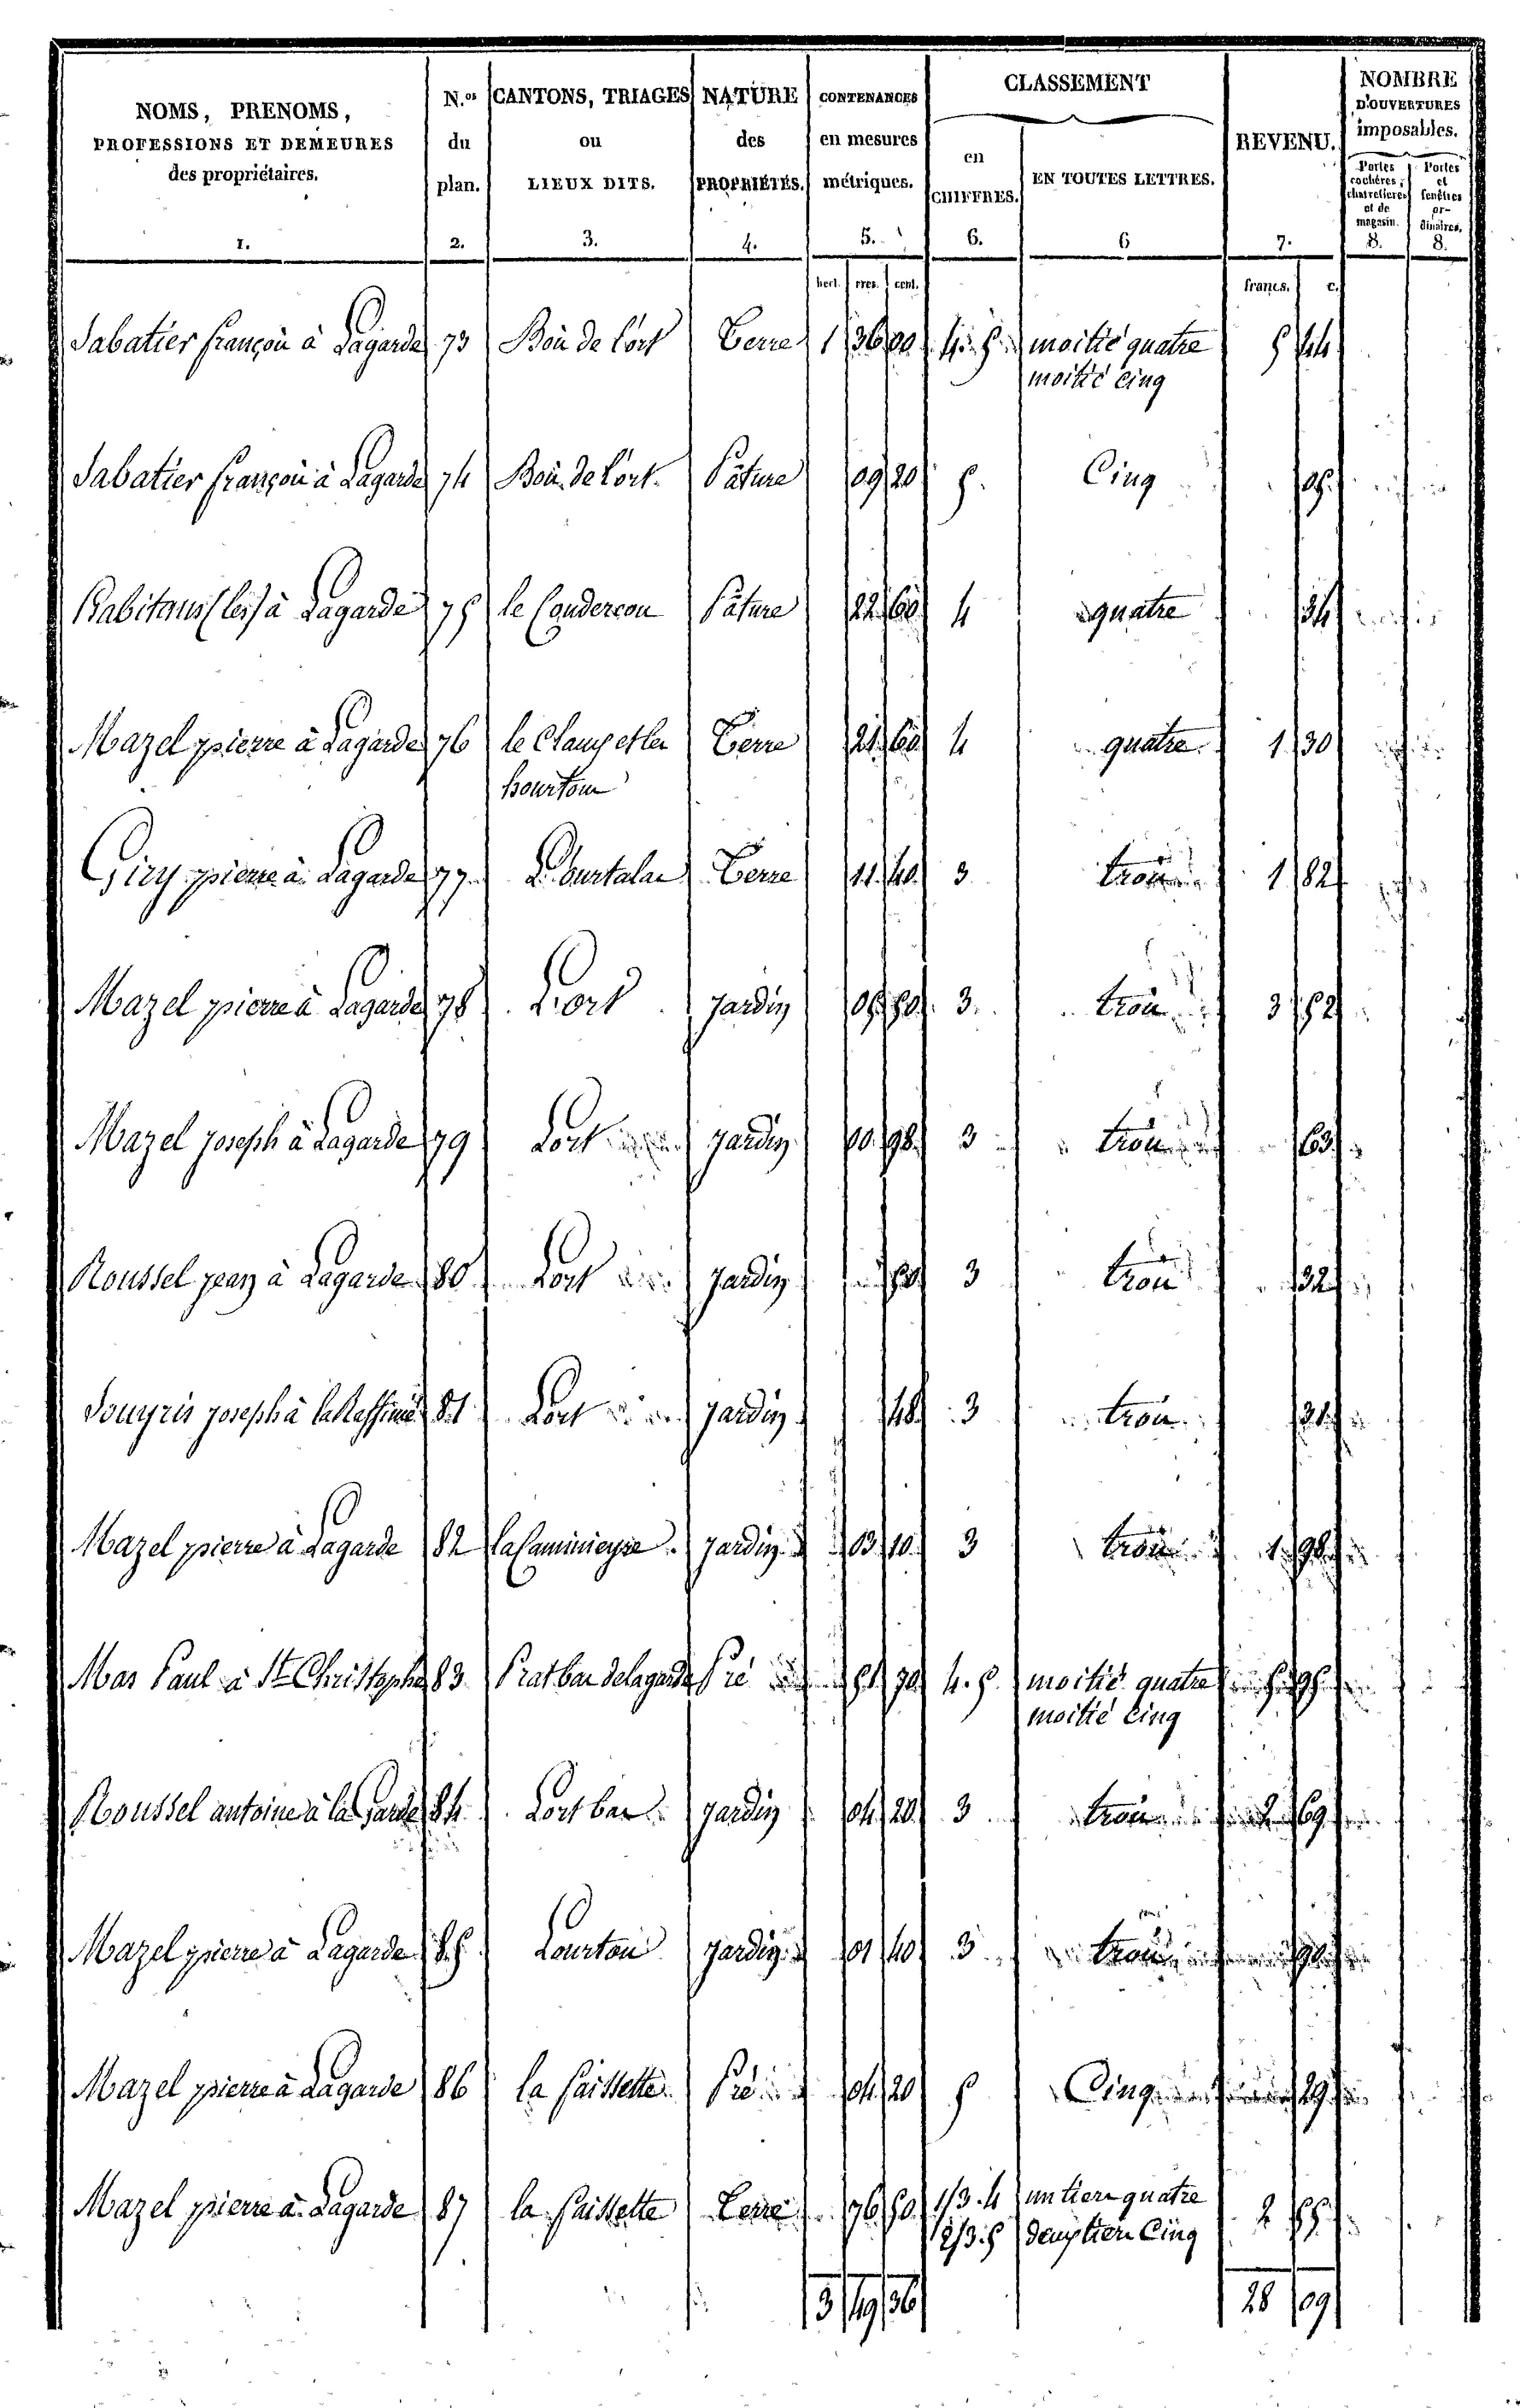 NOMS, PRENOMS, PROFESSIONS ET DEMEURES des propriétaires. 1.
N.os du plan. 2.
CANTONS, TRIAGES ou LIEUX DITS. 3.
NATURE des PROPRIÉTÉS. 4.
CONTENANCES en mesures métriques. 5.
CLASSEMENT
en CHIFFRES. 6.
EN TOUTES LETTRES. 6
REVENU. 7.
NOMBRE D'OUVERTURES imposables.
Portes cochères, charretières et de magasin. 8.
Portes et fenêtres ordinaires. 8.
hect. ares. cent. francs. c.
Sabatier françois à Lagarde 73 Bois de l'ort Terre 1 36 00 4. 5. moitié quatre 5 44
moitié cinq
Sabatier françois à Lagarde 74 Bois de l'ort Pâture 09 20 5. Cinq 05
habitans (les) à Lagarde 75 le Coudercou Pâture 22 60 4 quatre 34
Mazel pierre à Lagarde 76 le Terre 21 60 4 quatre 1 30
Giry pierre à Lagarde 77 Terre 11 40 3 trois 1 82
Mazel pierre à Lagarde 78 Lort jardin 05 50 3. trois 3 52
Mazel joseph à Lagarde 79 Lort jardin 00 98 3 trois 63
Roussel jean à Lagarde 80 Lort jardin 50 3 trois 32
Souyris joseph à 81 Lort jardin 48 3 trois 31
Mazel pierre à Lagarde 82 la Caminieyre jardin 03 10 3 trois 1 98
Mas Paul à St Christophe 83 Prat bas delagarde Pré 51 70 4. 5. moitié quatre 5 95
moitié cinq
Roussel antoine à la Garde 84 Lort bas jardin 04 20 3 trois 2 69
Mazel pierre à Lagarde 85 Lourtou jardin 01 40 3 trois 90
Mazel pierre à Lagarde 86 la faissette Pré 04 20 5 Cinq 29
Mazel pierre à Lagarde 87 la faissette Terre 76 50 1/3. 4 un tiers quatre 2 55
2/3. 5 deux tiers Cinq
3 49 36 28 09